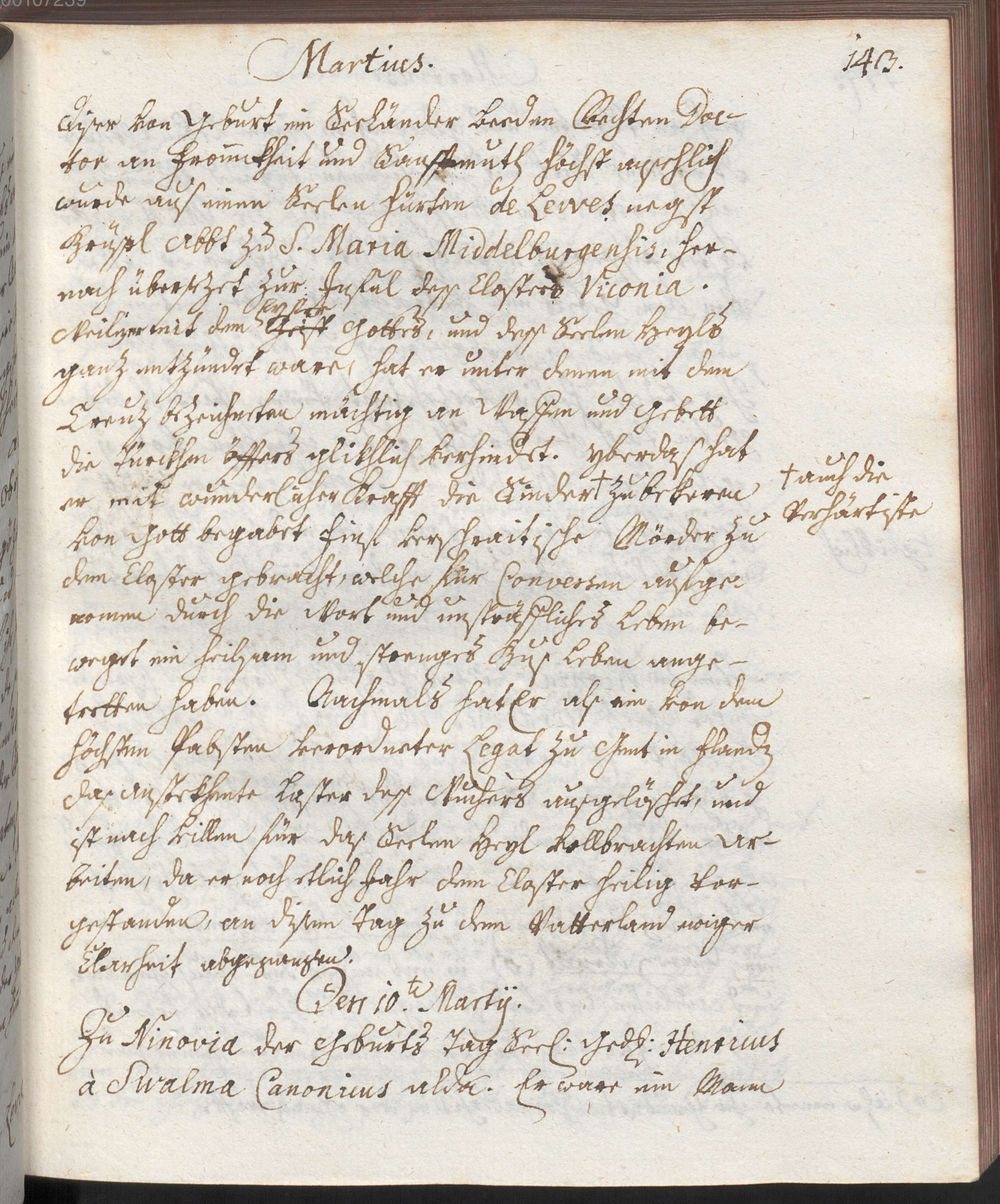 00107239
Martius.
143.
diser von Geburt ein Seeländer beeden Rechten Doc-
tor an Frommkheit und Sanfftmuth höchst ansehlich
wurde aus einem Seelen Hürten de Levves negst
Brüssl Abbt zu S. Maria Middelburgensis, her-
nach übersezet zur Insul dess Closters Viconia.
Weil er mit dem Eyffer Gottes, und dess Seelen Heyls
ganz entzündet ware, hat er unter denen mit dem
Creuz bezeichneten mächtig an Waffen und Gebett
die Türckhen öffters glikhlich verhindert. yberdass hat
er mit wunderlicher Krafft die Sünder † zubekeren
† auch die
Verhärtiste
von Gott begabet Fünf verschraitische Mörder zu
dem Closter gebracht, welche für Conversen aufge-
nomen durch die Wort und unsträffliches Leben be-
weget ein heilsam und strenges Bus Leben ange-
tretten haben. Nachmals hat Er als ein von dem
höchsten Pabsten verordneter Legat zu Gent in Fland
das anstekhente Laster dess Wuchers ausgelöschet, und
ist nach villen für das Seelen Heyl vollbrachten Ar-
beiten, da er noch etlich Jahr dem Closter heilig Vor-
gestanden, an disem Tag zu dem Vatterland ewiger
Clarheit abgegangen.
Den 10.te Martij.
Zu Ninovia der Geburts Tag Seel: Ged: Henricus
à Swalma Canonicus alda. Er ware ein Mann